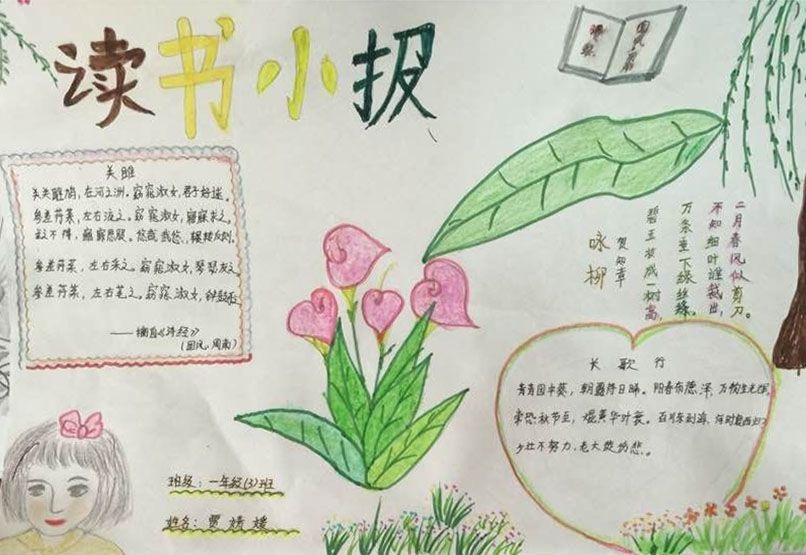 读书小报
诗歌
国风·周南
关雎
关关雎鸠，在河之洲。窈窕淑女，君子好逑。
参差荇菜，左右流之。窈窕淑女，寤寐求之。
求之不得，寤寐思服。悠哉悠哉，辗转反侧。
参差荇菜，左右采之。窈窕淑女，琴瑟友之。
参差荇菜，左右芼之。窈窕淑女，钟鼓乐之。
——摘自《诗经》
(国风·周南)
二月春风似剪刀。
不知细叶谁裁出，
万条垂下绿丝绦。
碧玉妆成一树高，
贺知章
咏柳
长歌行
青青园中葵，朝露待日晞。阳春布德泽，万物生光辉。
常恐秋节至，焜黄华叶衰。百川东到海，何时复西归？
少壮不努力，老大徒伤悲。
班级：一年级(3)班
姓名：贾婧媛